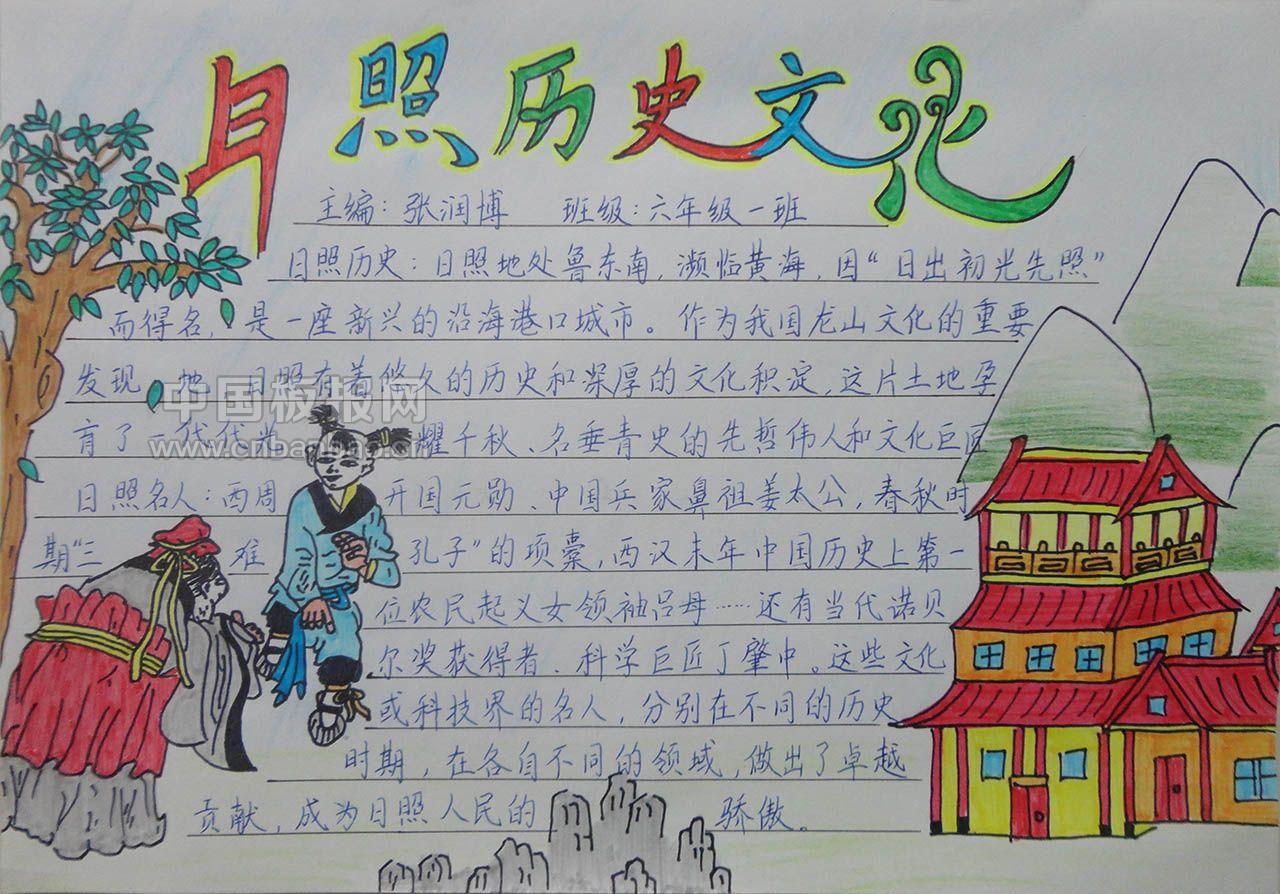 日照历史文化
主编：张润博 班级：六年级一班
日照历史：日照地处鲁东南，濒临黄海，因“日出初光先照”
而得名，是一座新兴的沿海港口城市。作为我国龙山文化的重要
发现 地，日照有着悠久的历史和深厚的文化积淀，这片土地孕
育了 代代光 耀千秋、名垂青史的先哲伟人和文化巨匠
日照名人：西周 开国元勋、中国兵家鼻祖姜太公，春秋时
期“三 难 孔子”的项橐，西汉末年中国历史上第一
位农民起义女领袖吕母……还有当代诺贝
尔奖获得者、科学巨匠丁肇中。这些文化
或科技界的名人，分别在不同的历史
时期，在各自不同的领域，做出了卓越
贡献，成为日照人民的 骄傲。
中国板报网
www.cnbanbao.cn